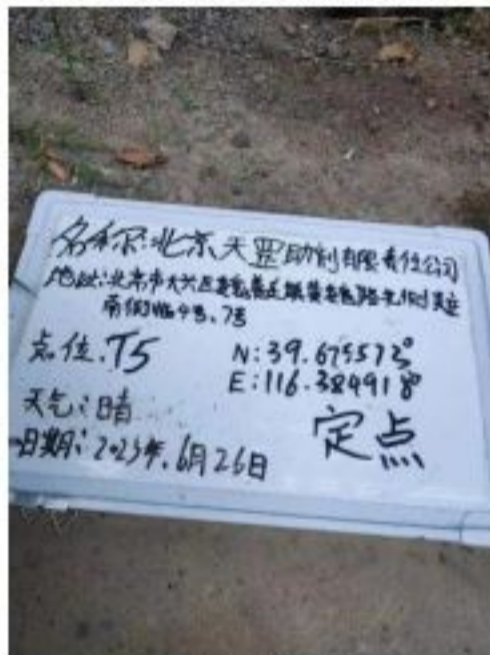 名称:北京天罡助剂有限责任公司
地址:北京市大兴区
南侧临4号.7号
点位.T5
N:39.675573°
E:116.384918°
天气:晴
定点
日期:2025年.6月26日